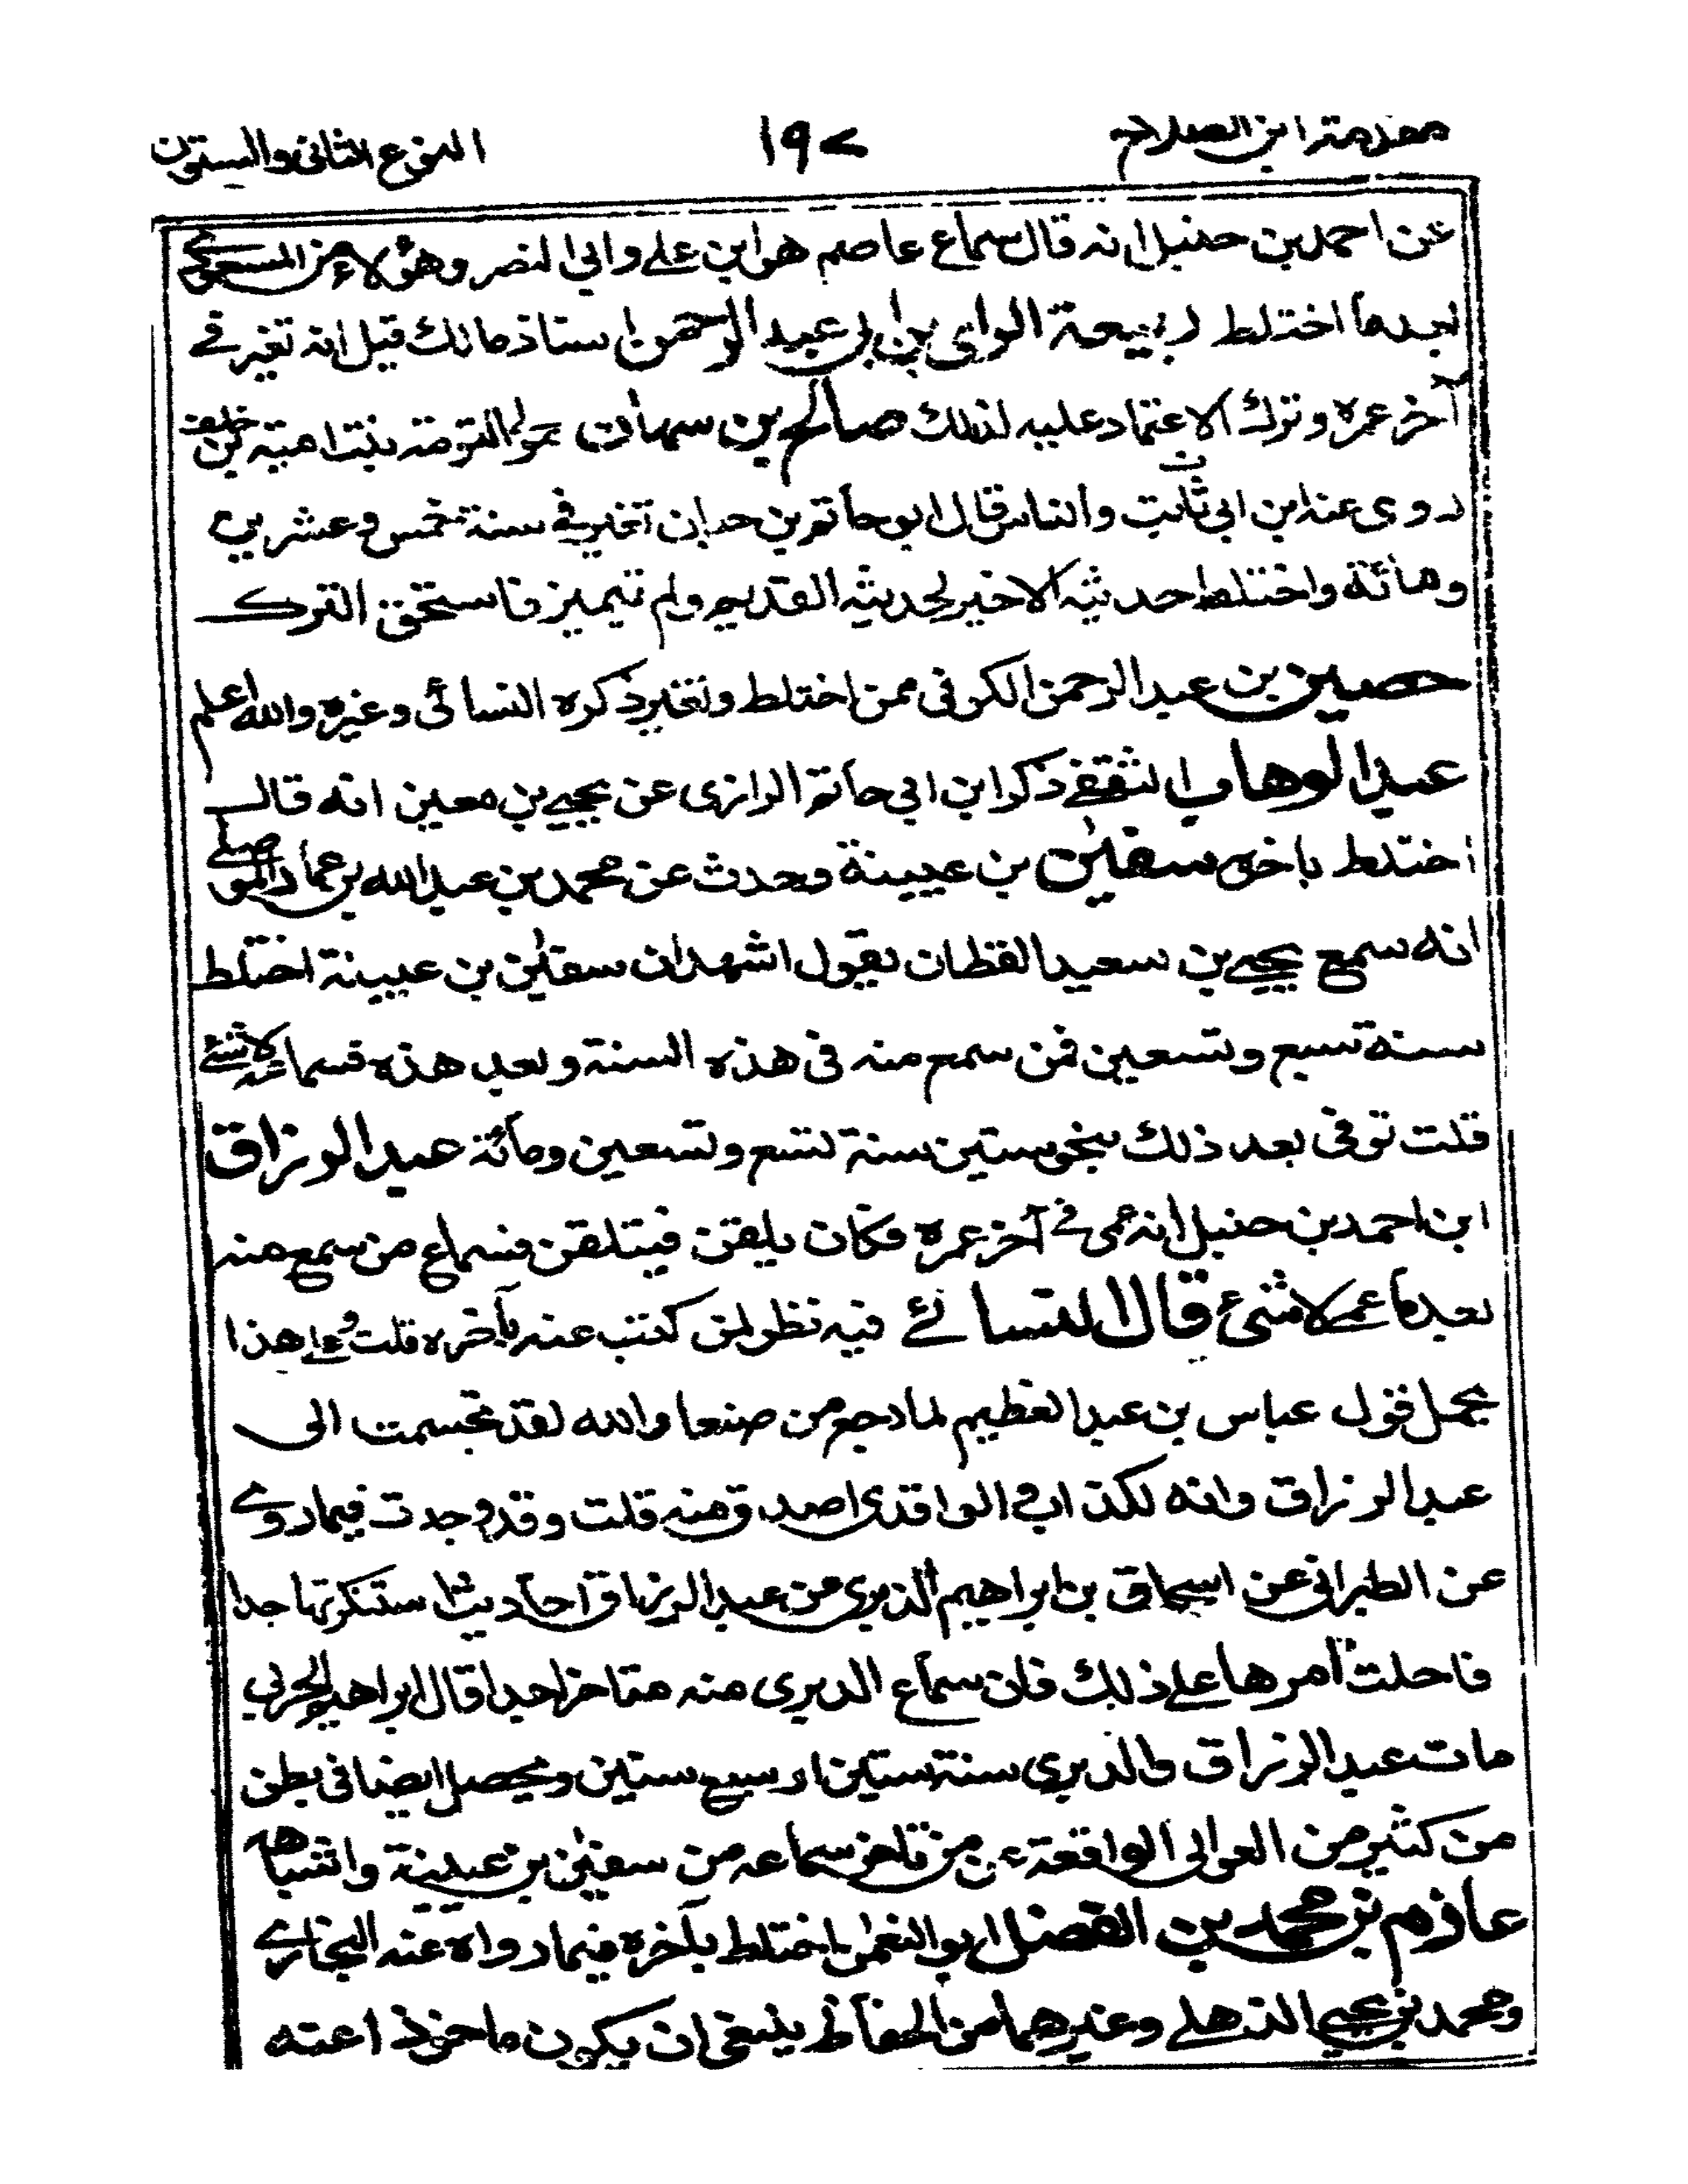 مقدمة ابن الصلاح ١٩٢ النوع الثاني والستون
عن احمد بن حنبل انه قال سماع عاصم هو ابن على وابي النضر وهؤلاء من المسعودي
بعد ما اختلط ربيعة الراى بن ابى عبد الرحمن استاذ مالك قيل انه تغير في
آخر عمره وترك الاعتماد عليه لذلك صالح بن سهان مولى التومة بنت امية بن خلف
روى عنه ابن ابي ثابت والناس قال ابو حاتم بن حبان تغير في سنة خمس وعشرين
ومائة واختلط حديثه الاخير لحديثه القديم ولم يتميز فاستحق الترك
حصين بن عبد الرحمن الكوفى ممن اختلط وتغير ذكره النسائى وغيره والله اعلم
عبد الوهاب الثقفے ذكر ابن ابي حاتم الرازى عن يحيے بن معين انه قال
اختلط باخرہ سفيٰن بن عيينة وحدث عن محمد بن عبد الله بن عمار الموصلے
انه سمع يحيے بن سعيد القطان يقول اشهد ان سفيٰن بن عيينة اختلط
سنة سبع وتسعين فمن سمع منه فى هذه السنة وبعد هذه فسماعه لا شئے
قلت توفى بعد ذلك بنحو ستين سنة تسع وتسعين ومائة عبد الرزاق
ابن احمد بن حنبل انه عمى فے آخر عمره فكان يلقن فيتلقن فسماع من سمع منه
بعد ما عمے لا شئ قال النسائے فيه نظر لمن كتب عنه بآخره قلت وعلے هذا
يحمل قول عباس بن عبد العظيم لما رجع من صنعا والله لقد تجسمت الى
عبد الرزاق وانه لكذاب والواقدى اصدق منه قلت وقد وجدت فيما روے
عن الطبرانى عن اسحاق بن ابراهيم الدبرى من عبد الرزاق احاديث استنكرتها جدا
فاحلت امرها على ذلك فان سماع الدبرى منه متاخر جدا قال ابراهيم الحربى
مات عبد الرزاق والدبرى سنة ستين او سبع ستين ويحصل ايضا فى نظر
من كثير من العوالى الواقعة عن من تاخر سماعه من سفيٰن بن عيينة واشباهه
عازم بن محمد بن الفضل ابو النعمٰن اختلط بآخره فيما رواه عنه البخارے
ومحمد بن يحيے الذهلے وغيرهما من الحفاظ ينبغى ان يكون ماخوذا عنه